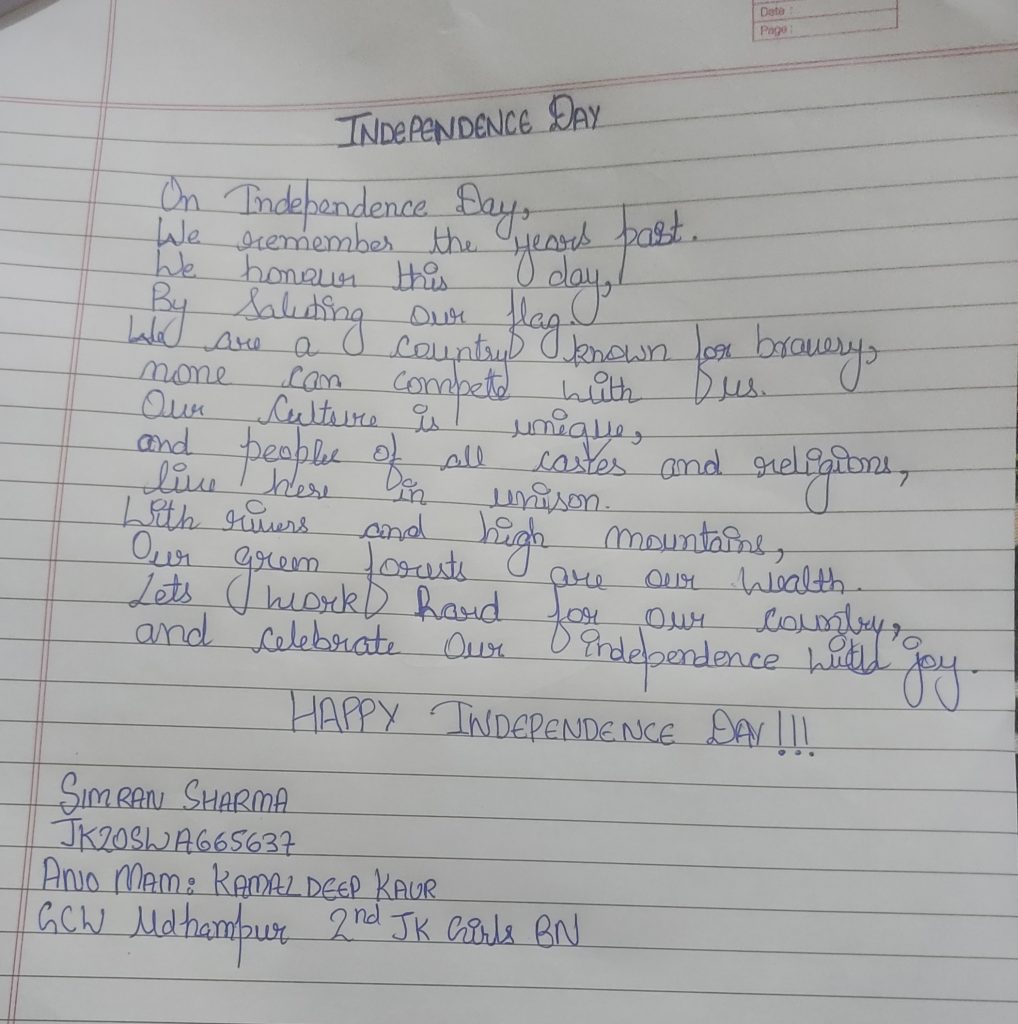 Date :
Page :
INDEPENDENCE DAY
On Independence Day,
We remember the years past.
We honour this day,
By Saluting our flag.
We are a country known for bravery,
none can compete with us.
Our Culture is unique,
and people of all castes and religions,
live here in unison.
With rivers and high mountains,
Our green forests are our wealth.
Lets work hard for our country,
and celebrate our independence with joy.
HAPPY INDEPENDENCE DAY!!!
SIMRAN SHARMA
JK20SWA665637
ANO MAM: KAMALDEEP KAUR
GCW Udhampur 2nd JK Girls BN